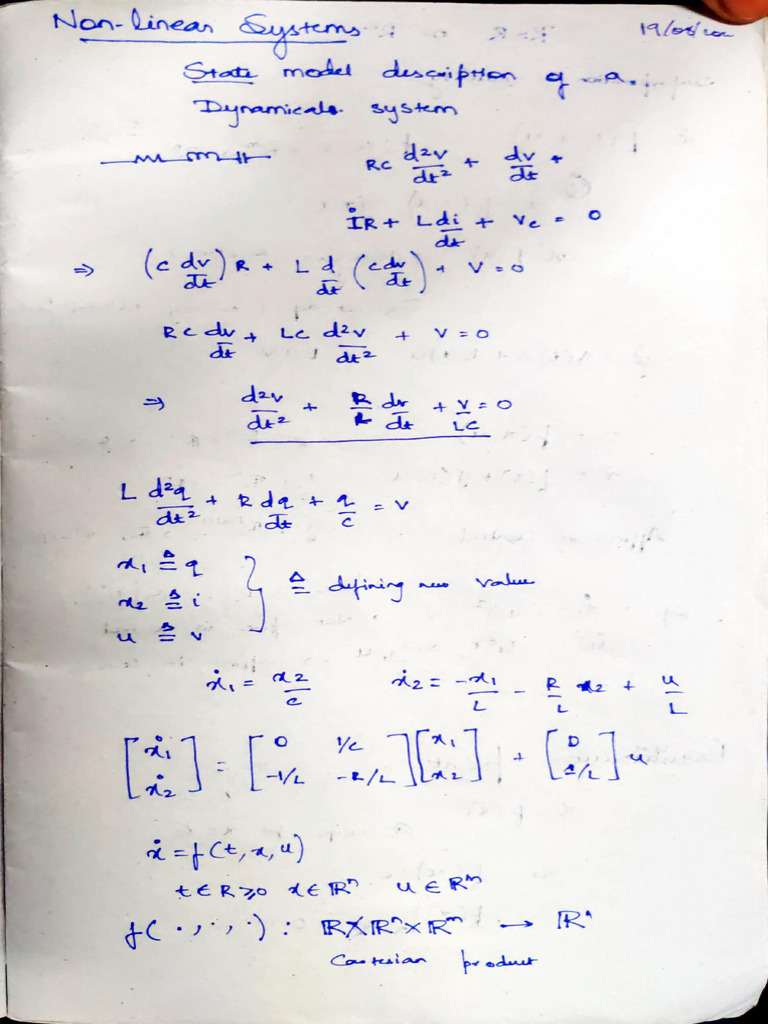 Non-linear Systems
State model description of a
Dynamical system
RC d²v/dt² + dv/dt +
iR + L di/dt + Vc = 0
⇒ (C dv/dt) R + L d/dt (C dv/dt) + V = 0
RC dv/dt + LC d²v/dt² + V = 0
⇒ d²v/dt² + R/L dv/dt + V/LC = 0
L d²q/dt² + R dq/dt + q/C = V
x₁ ≜ q
x₂ ≜ i } ≜ defining new value
u ≜ v
ẋ₁ = x₂/C ẋ₂ = -x₁/L - R/L x₂ + u/L
[ẋ₁ ẋ₂] = [0 1/C -1/L -R/L] [x₁ x₂] + [0 1/L] u
ẋ = f(t, x, u)
t ∈ R ≥ 0 x ∈ ℝⁿ u ∈ ℝᵐ
f(·,·,·) : ℝ × ℝⁿ × ℝᵐ → ℝⁿ
Cartesian product